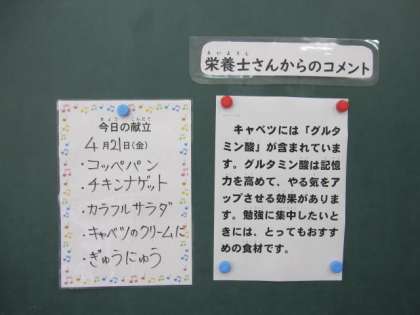 えいようし
栄養士さんからのコメント
きょう こんだて
今日の献立
4月21日(金)
・コッペパン
・チキンナゲット
・カラフルサラダ
・キャベツのクリームに
・ぎゅうにゅう
キャベツには「グルタ
ミン酸」が含まれていま
す。グルタミン酸は記憶
力を高めて、やる気をア
ップさせる効果がありま
す。勉強に集中したいと
きには、とってもおすす
めの食材です。